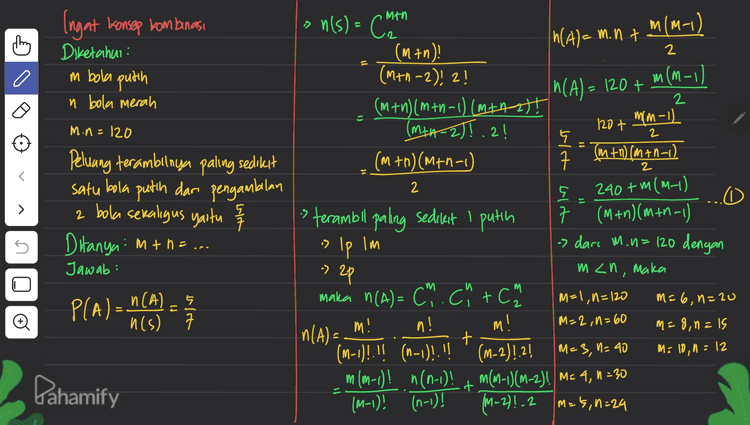 Ingat konsep kombinasi
Diketahui :
m bola putih
n bola merah
m.n = 120
Peluang terambilnya paling sedikit
satu bola putih dari pengambilan
2 bola sekaligus yaitu 5/7
Ditanya : m + n = ...
Jawab :
P(A) = n(A)/n(s) = 5/7
Pahamify
> n(s) = C₂ᵐ⁺ⁿ
= (m+n)! / (m+n-2)! 2!
= (m+n)(m+n-1)(m+n-2)! / (m+n-2)! . 2!
= (m+n)(m+n-1) / 2
> terambil paling sedikit 1 putih
> 1p 1m
> 2p
maka n(A) = C₁ᵐ . C₁ⁿ + C₂ᵐ
n(A) = m!/(m-1)!.1! . n!/(n-1)!.1! + m!/(m-2)!.2!
= m(m-1)!/(m-1)! . n(n-1)!/(n-1)! + m(m-1)(m-2)!/(m-2)!.2
n(A) = m.n + m(m-1)/2
n(A) = 120 + m(m-1)/2
5/7 = (120 + m(m-1)/2) / ((m+n)(m+n-1)/2)
5/7 = (240 + m(m-1)) / ((m+n)(m+n-1)) ...①
-> dari m.n = 120 dengan
m < n, maka
m=1, n=120 m=6, n=20
m=2, n=60 m=8, n=15
m=3, n=40 m=10, n=12
m=4, n=30
m=5, n=24